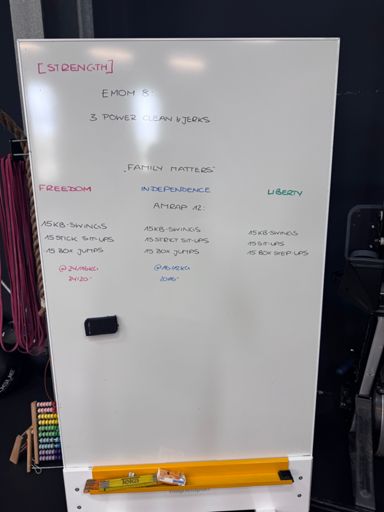 [STRENGTH]
EMOM 8:
3 POWER CLEAN & JERKS
"FAMILY MATTERS"
FREEDOM INDEPENDENCE LIBERTY
AMRAP 12:
15 KB-SWINGS 15 KB-SWINGS 15 KB-SWINGS
15 STICK SIT-UPS 15 STRICT SIT-UPS 15 SIT-UPS
15 BOX JUMPS 15 BOX JUMPS 15 BOX STEP UPS
@24/16KG @16/12KG
24/20" 20/16"